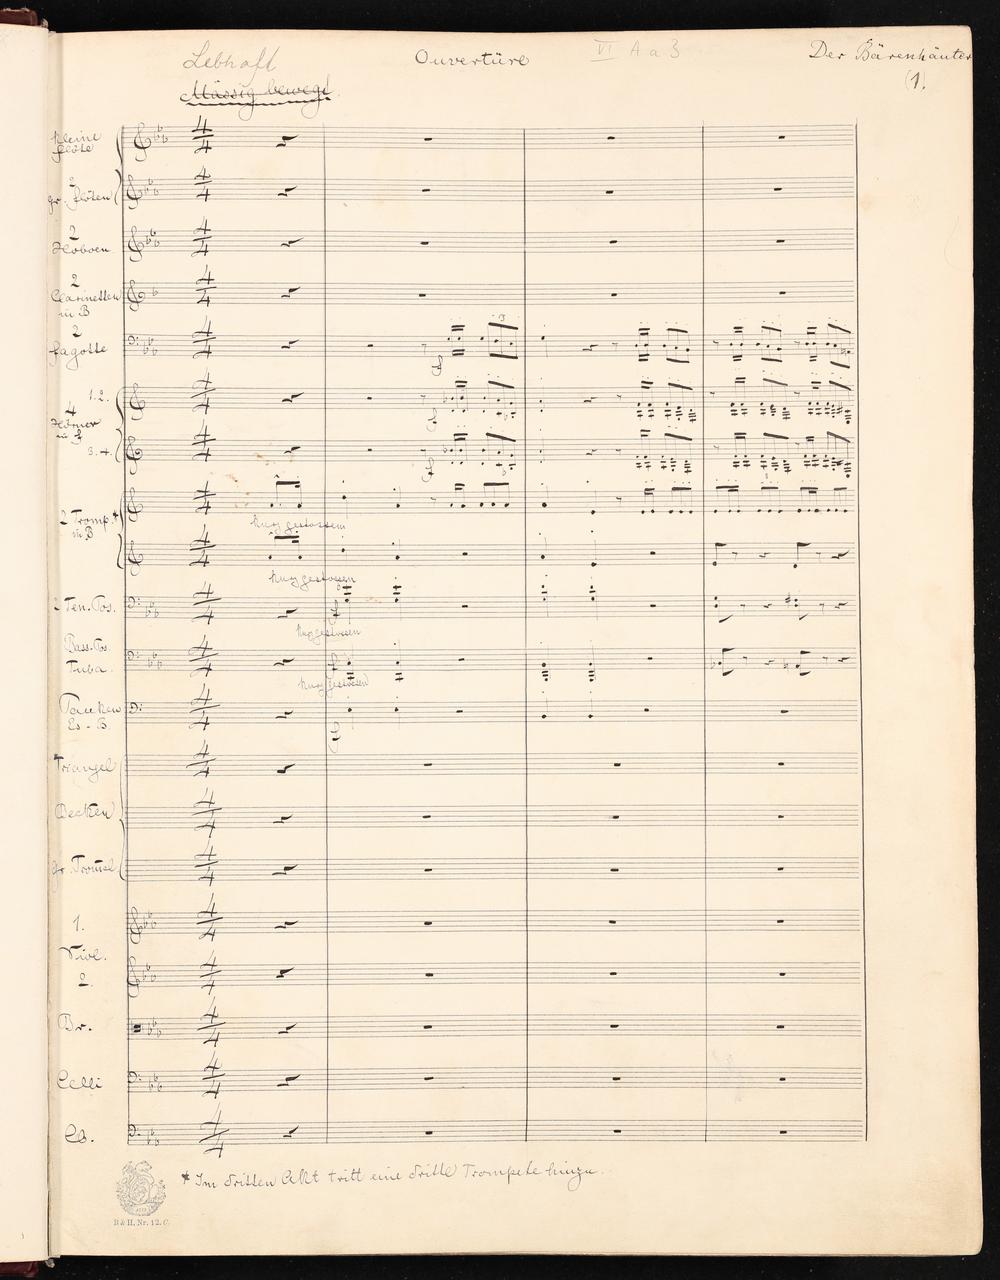 Lebhaft
Ouvertüre
VI A a 3
Der Bärenhäuter
(1.
Mässig bewegt.
kleine
Flöte
2
gr. Flöten
2
Hoboen
2
Clarinetten
in B
2
Fagotte
3
f
1. 2.
4
Hörner
in F
f
3. 4.
f
2 Tromp.*
in B
kurz gestossen
kurz gestossen
2 Ten. Pos.
f
kurz gestossen
Bass-Pos.
Tuba
f
kurz gestossen
Pauken
Es - B.
f
Triangel
Becken
gr. Trommel
1.
Viol.
2.
Br.
Celli
Cb.
* Im dritten Akt tritt eine dritte Trompete hinzu.
B & H. Nr. 12. C.